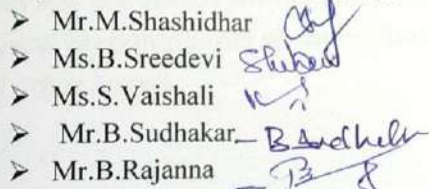 ➤ Mr.M.Shashidhar
➤ Ms.B.Sreedevi
➤ Ms.S.Vaishali
➤ Mr.B.Sudhakar
➤ Mr.B.Rajanna